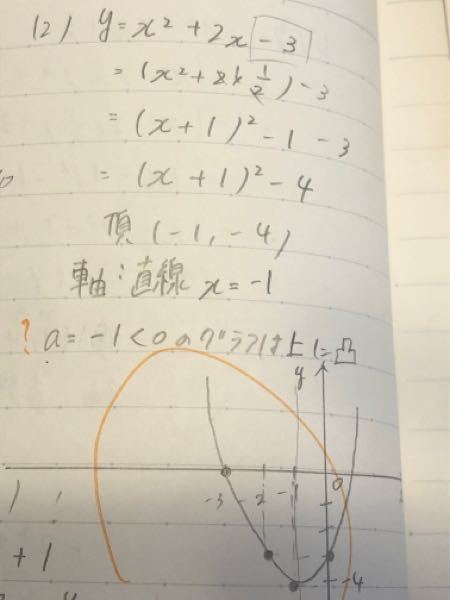 (2) y=x²+2x-3
=(x²+2x )-3
=(x+1)²-1-3
=(x+1)²-4
頂(-1,-4)
軸:直線 x=-1
? a=-1<0のグラフは上に凸
y
-3 -2 -1 0
-4
+1